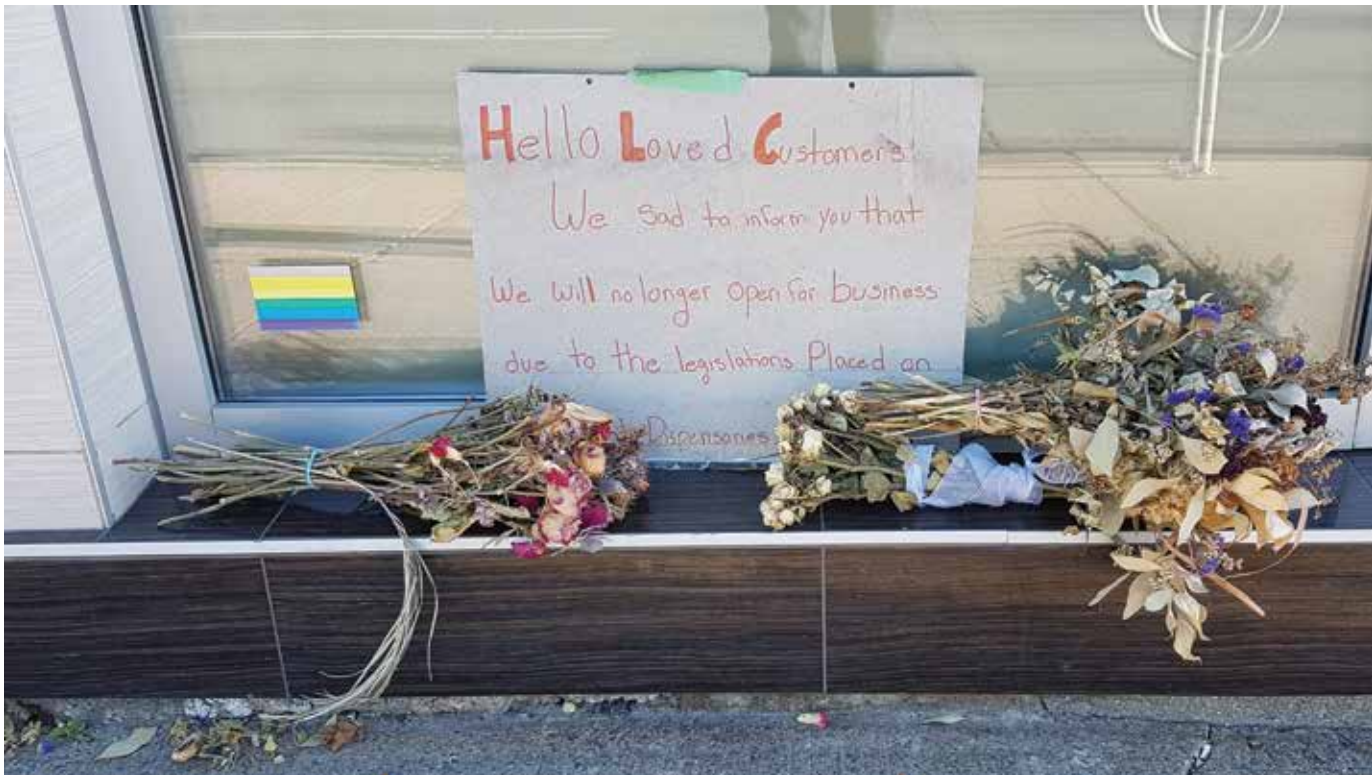 Hello Loved Customers!
We Sad to inform you that
We will no longer Open for business
due to the legislations Placed on
Dispensaries